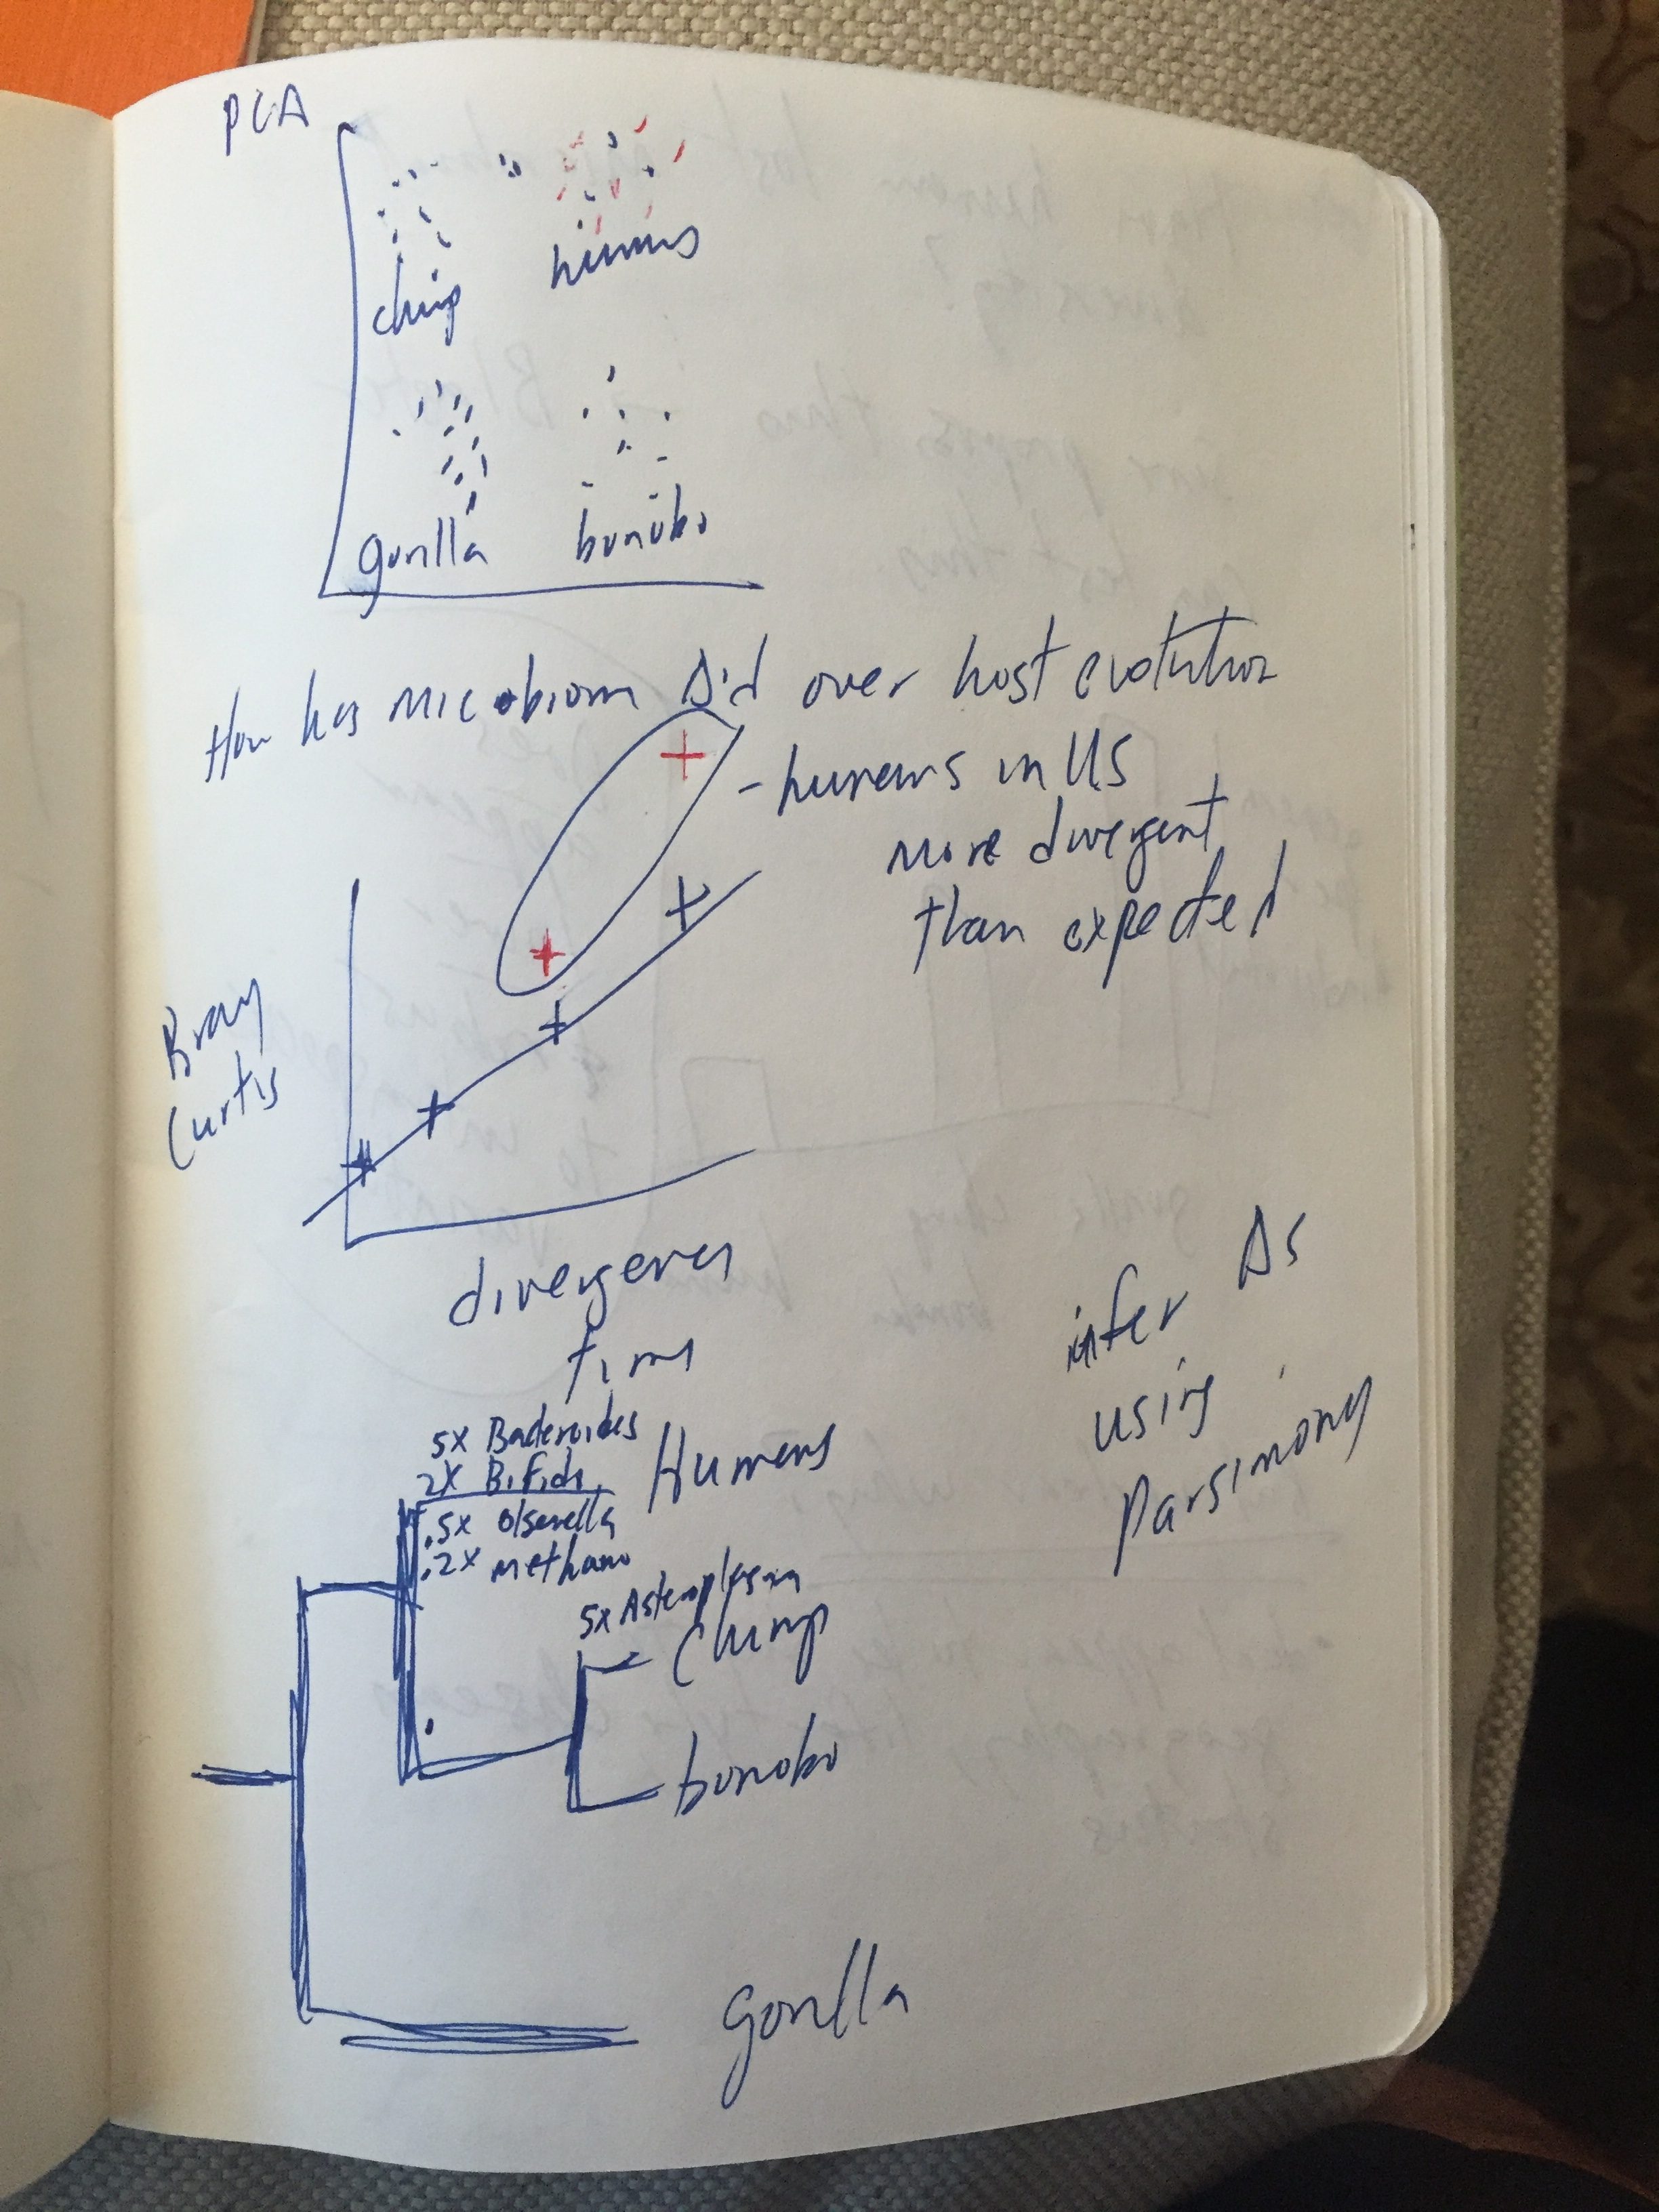 PCA
chip
humns
gorilla
bonobo
How has microbiom Δ'd over host evolution
- humans in US
more divergent
than expected
Bray
Curtis
divergence
time
infer Δs
using
Parsimony
5x Bacteroides
2x Bifido
.5x Olsenella
.2x methano
Humans
5x Asteroplasma
Chimp
bonobo
gorilla